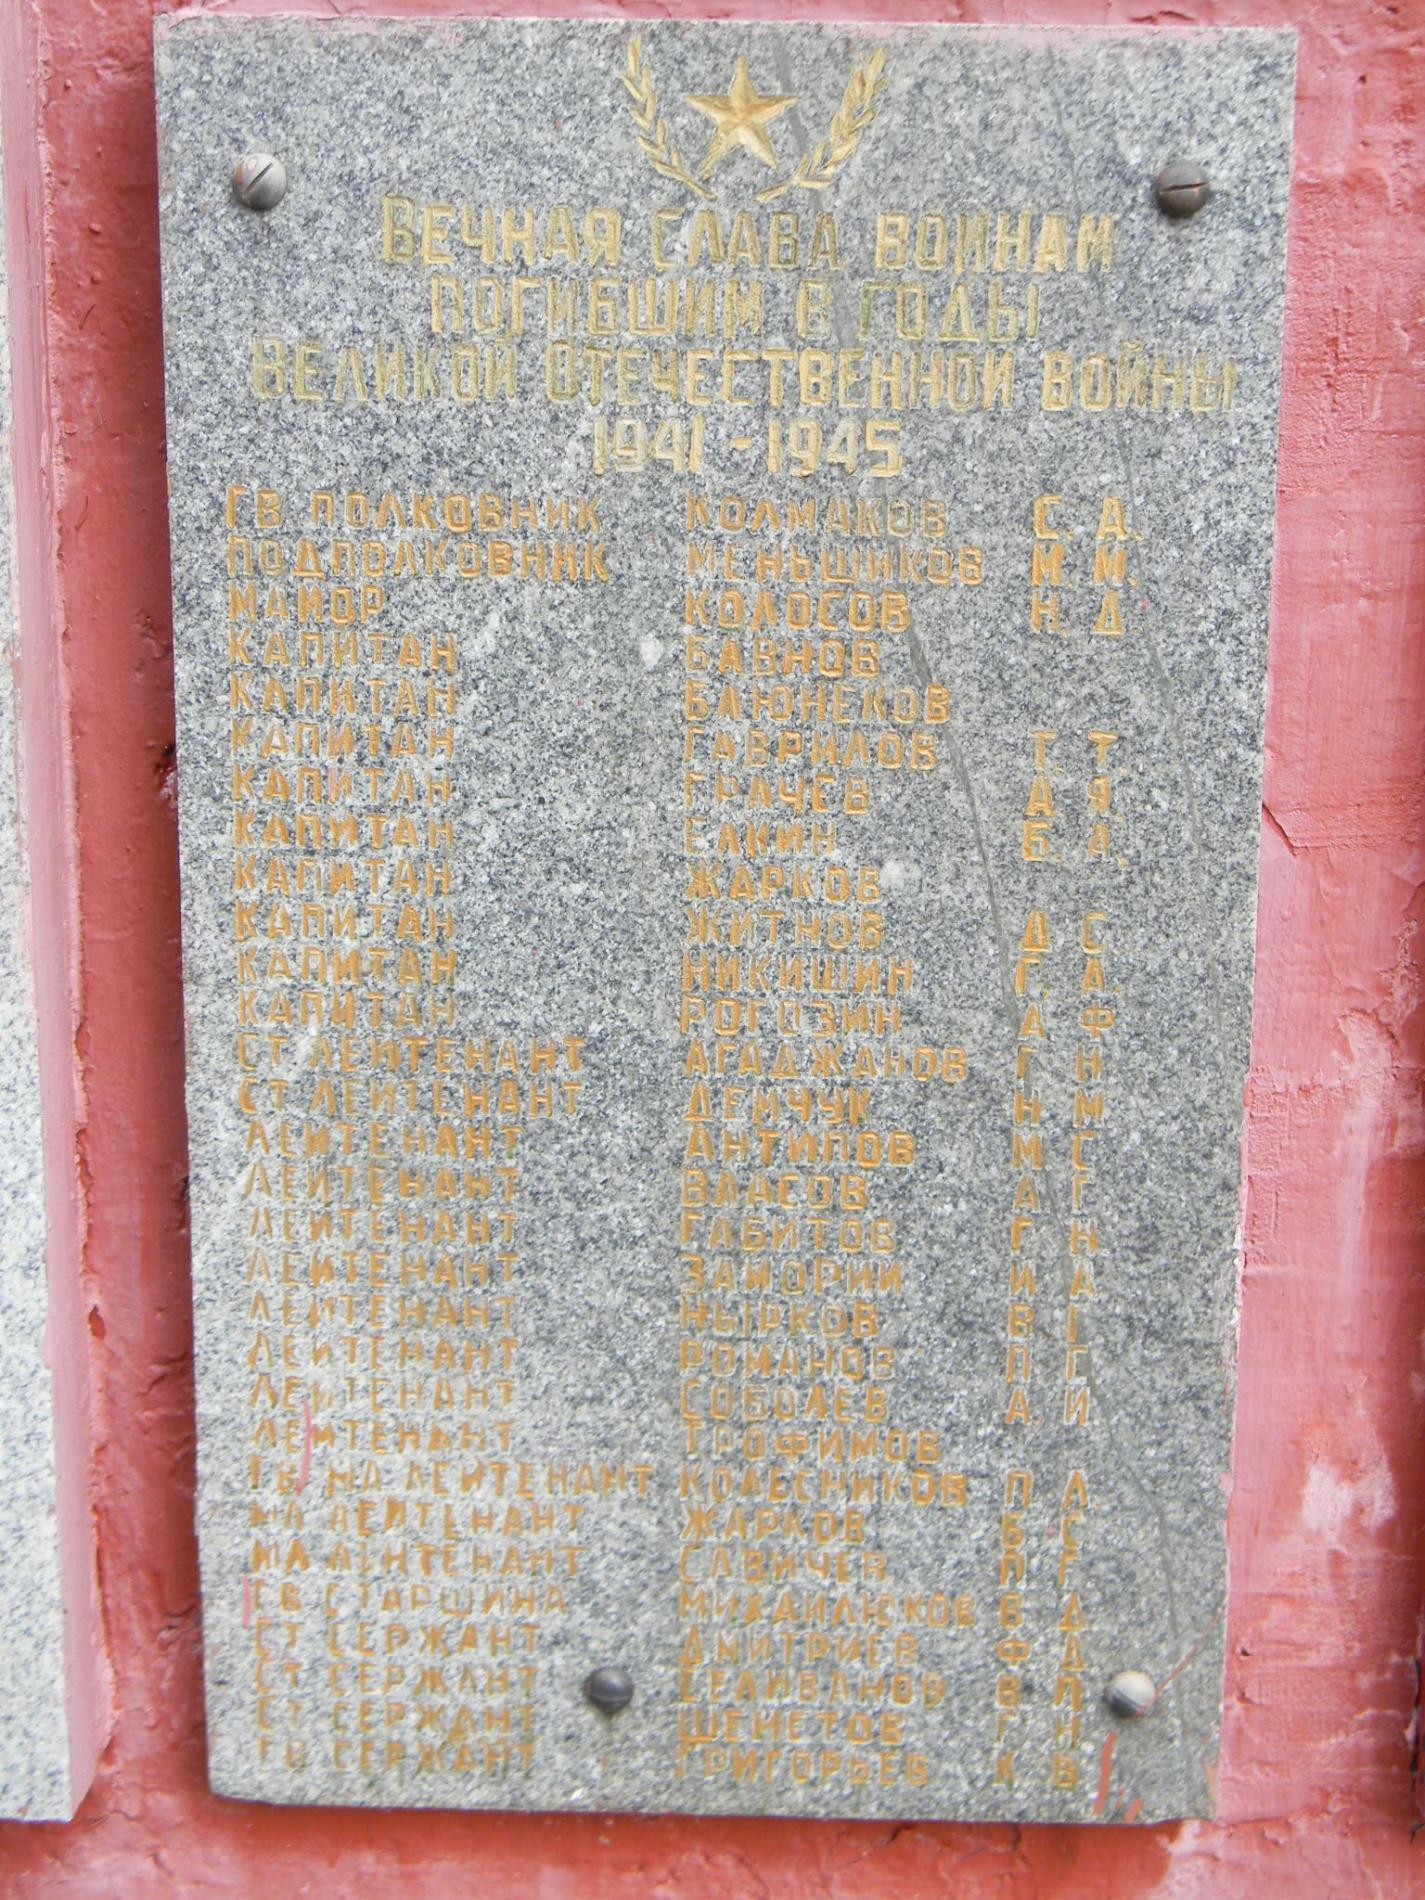 Вечная слава воинам
погибшим в годы
Великой Отечественной войны
1941-1945
ГВ. ПОЛКОВНИК КОЛМАКОВ С. А.
ПОДПОЛКОВНИК МЕНЬШИКОВ М. М.
МАЙОР КОЛОСОВ Н. Д.
КАПИТАН БАВНОВ
КАПИТАН БЛЮНЕКОВ
КАПИТАН ГАВРИЛОВ Т. Т.
КАПИТАН ГРАЧЕВ А Я
КАПИТАН ЕЛКИН Б. А.
КАПИТАН ЖАРКОВ
КАПИТАН ЖИТНОВ Д С.
КАПИТАН НИКИШИН Г. А.
КАПИТАН РОГОЗИН А Ф
СТ ЛЕЙТЕНАНТ АГАДЖАНОВ Г Н
СТ ЛЕЙТЕНАНТ ДЕМЧУК Н М
ЛЕЙТЕНАНТ АНТИПОВ М С
ЛЕЙТЕНАНТ ВЛАСОВ А Г
ЛЕЙТЕНАНТ ГАБИТОВ Г Н
ЛЕЙТЕНАНТ ЗАМОРИЙ И А
ЛЕЙТЕНАНТ НЫРКОВ В Г
ЛЕЙТЕНАНТ РОМАНОВ П Г
ЛЕЙТЕНАНТ СОБОЛЕВ А И
ЛЕЙТЕНАНТ ТРОФИМОВ
ГВ МЛ ЛЕЙТЕНАНТ КОЛЕСНИКОВ П А
МЛ ЛЕЙТЕНАНТ ЖАРКОВ Б С
МЛ ЛЕЙТЕНАНТ САВИЧЕВ П Г
ГВ СТАРШИНА МИХАЙЛЮКОВ Б Д
СТ СЕРЖАНТ ДМИТРИЕВ Ф Д
СТ СЕРЖАНТ СЕЛИВАНОВ В П
СТ СЕРЖАНТ ШЕМЕТОВ Г Н
ГВ СЕРЖАНТ ГРИГОРЬЕВ К В